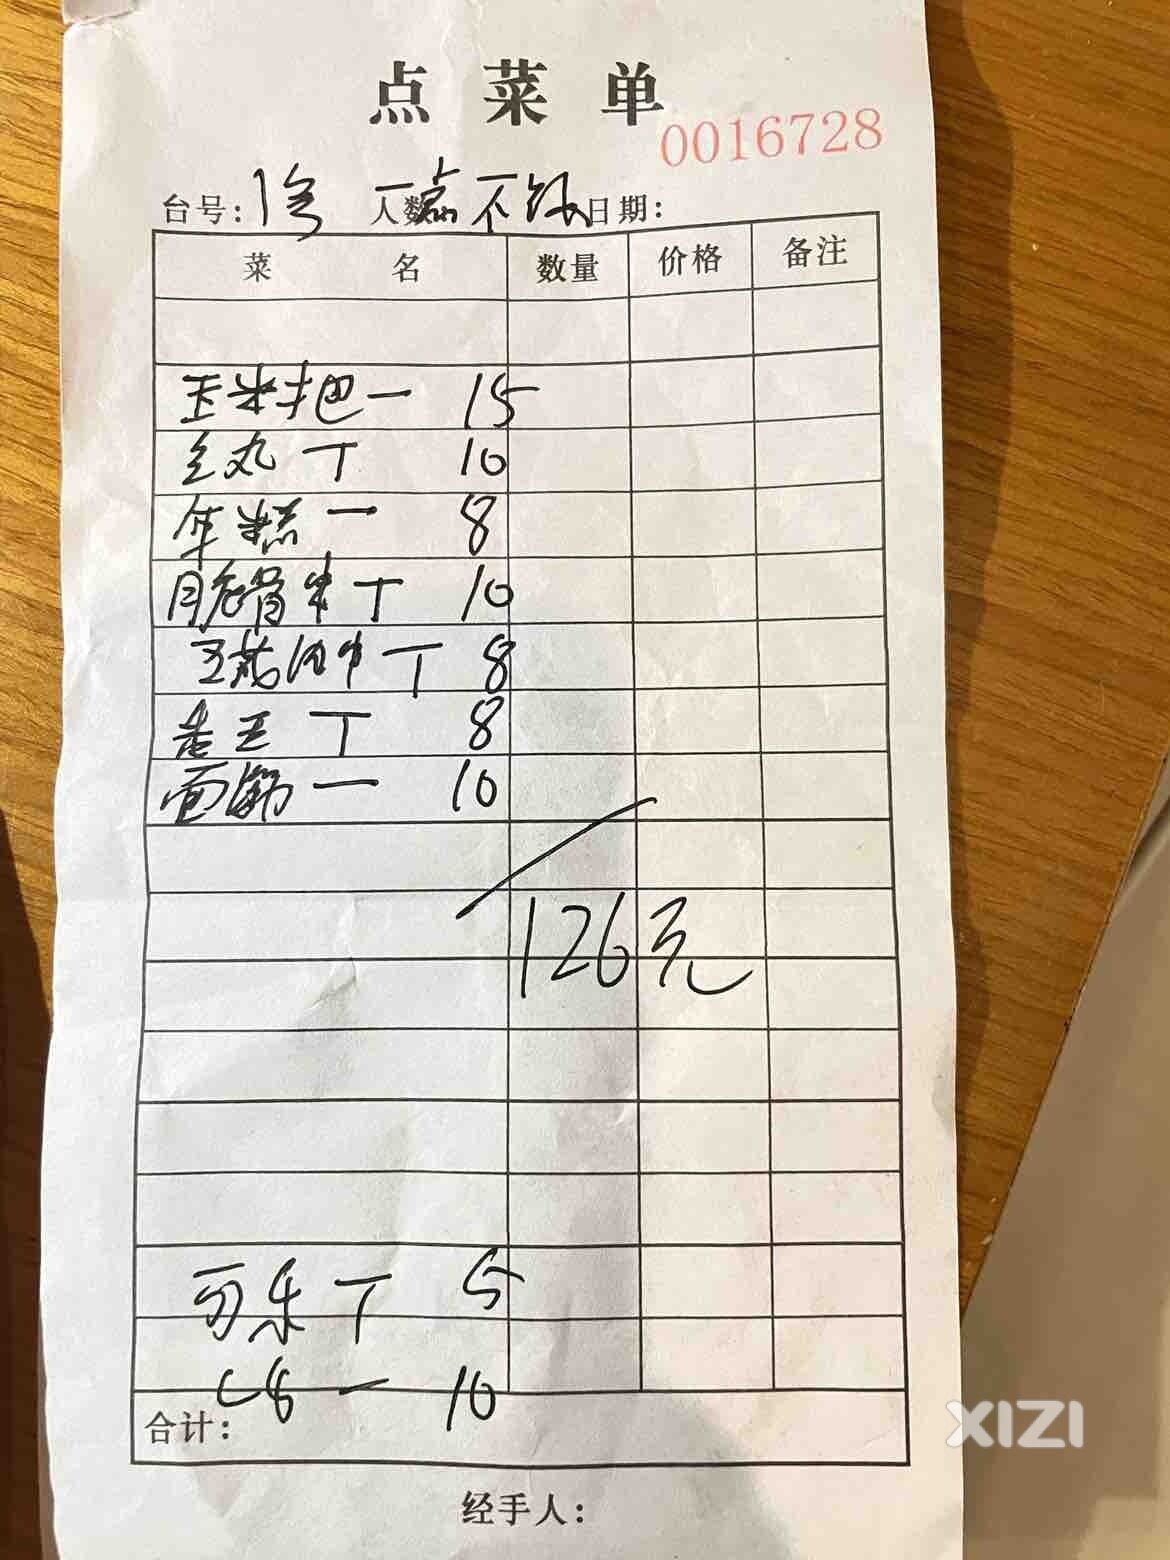 点菜单
0016728
台号: 1号 人数: 一点不辣 日期:
菜 名 数量 价格 备注
玉米把一 15
丸 丁 10
年糕 一 8
脆骨串丁 10
丁 8
丁 8
面筋 一 10
126元
可乐丁 5
一 10
合计:
经手人:
XIZI